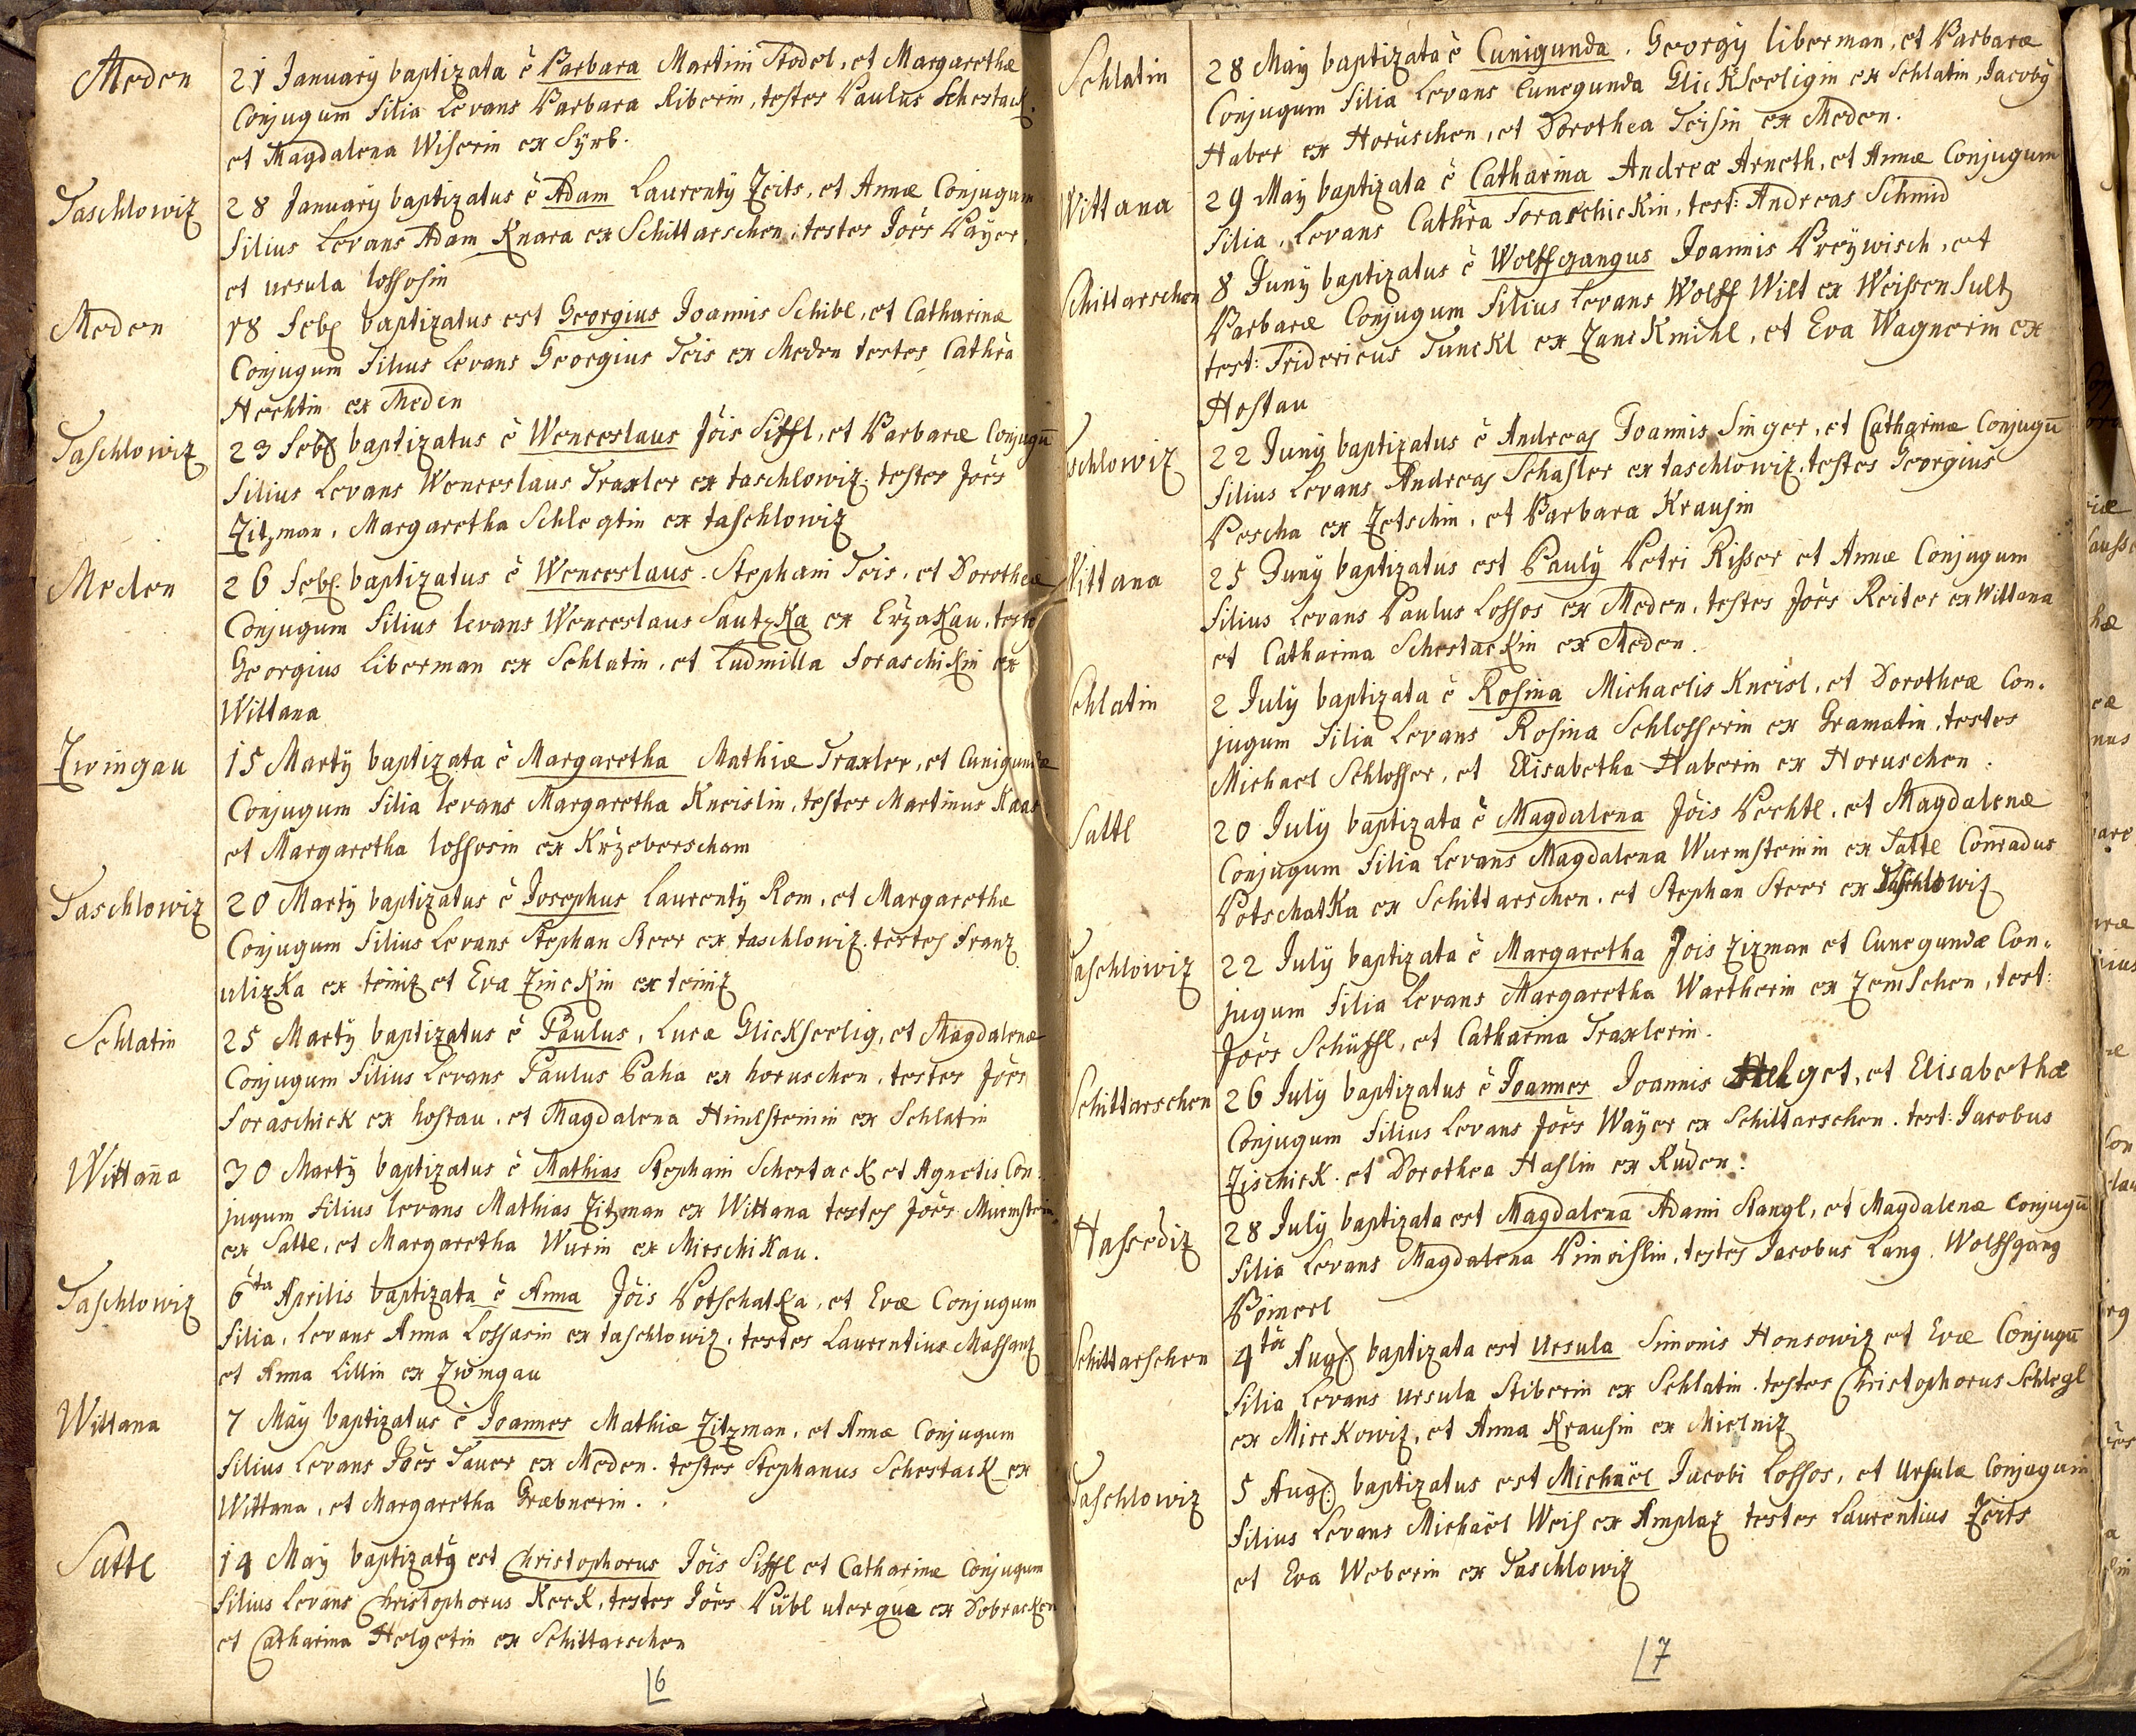 Meden
21 Januarÿ baptizata ê Barbara Martini Stodel, et Margarethæ
Conjugum Filia Levans Barbara Riberin, testes Paulus Schestack.
et Magdalena Wiserin ex Sÿrb.
Taschlowiz
28 Januarÿ baptizatus ê Adam Laurentÿ Zeits, et Annæ Conjugum
Filius Levans Adam Knara ex Schittarschen, testes Joês Bayer,
et ursula lossosin
Meden
18 Feb baptizatus est Georgius Joannis Schibl, et Catharinæ
Conjugum Filius Levans Georgius Teis ex Meden testes Cathra
Hechtin ex Meden
Taschlowiz
23 Feb baptizatus ê Wenceslaus Jôis Siffl, et Barbaræ Conjugū
Filius Levans Wenceslaus Traxler ex taschlowiz. testes Joês
Zitzman, Margaretha Schlegtin ex taschlowiz
Meden
26 Feb. baptizatus ê Wenceslaus. Stephani Teis, et Dorotheæ
Conjugum Filius levans Wenceslaus Sautzka ex Eržakau, teste
Georgius Liberman ex Schlatin, et Ludmilla Foraschikin ex
Wittana
Zwingau
15 Martÿ baptizata ê Margaretha Mathiæ Traxler, et Cunigundæ
Conjugum Filia levans Margaretha Kneislin, testes Martinus Kaas
et Margaretha lossosin ex Kržeberscham
Taschlowiz
20 Martÿ baptizatus ê Josephus Laurentÿ Rom, et Margarethæ
Conjugum Filius Levans Stephan Steer ex taschlowiz. testes Franz
ulizka ex teiniz et Eva Zinckin ex teiniz
Schlatin
25 Martÿ baptizatus ê Paulus, Lucæ Glickseelig, et Magdalenæ
Conjugum Filius Levans Paulus Paha ex horuschen, testes Joês
Foraschick ex hostau, et Magdalena Himlsteinin ex Schlatin
Wittan̄a
30 Martÿ baptizatus ê Mathias Stephani Schestack et Agnetis Con.
jugum Filius levans Mathias Zitzman ex Wittana testes Joês Muemstein
ex Satte, et Margaretha Wurin ex Mirschikau.
Taschlowiz
6ta Aprilis baptizata ê Anna Jôis Potschatka, et Evæ Conjugum
Filia, Levans Anna Lossasin ex taschlowiz, testes Laurentius Massanz
et Anna Lillin ex Zwingau
Wittana
7 Maÿ baptizatus ê Joannes Mathiæ Zitzman, et Annæ Conjugum
Filius Levans Joês Tauer ex Meden. testes Stephanus Schestack ex
Wittana, et Margaretha Græbnerin.
Sattl
14 Maÿ baptizatq est Christophorus Jôis Siffl et Catharinæ Conjugum
Filius Levans Christophorus Keck, testes Joês Pübl uterque ex Dobracken
et Catharina Helgetin ex Schittarschen
6
Schlatin
28 Maÿ baptizata ê Cunigunda. Georgÿ liberman, et Barbaræ
Conjugum Filia Levans Cunegunda Glickseeligin ex Schlatin, Jacobq
Haber ex Horuschen, et Dorothea Teisin ex Meden.
Wittana
29 Maÿ baptizata ê Catharina Andreæ Arneth, et Annæ Conjugum
Filia, Levans Cathra Foraschickin, test: Andreas Schmid
Schittarschen
8 Junÿ baptizatus ê Wolffgangus Joannis Preÿwisch, et
Barbaræ Conjugum Filius Levans Wolff Wilt ex Weissensultz
test: Fridericus Tunckl ex Zanckmihl, et Eva Wagnerin ex
Hostau
schlowiz
22 Junÿ baptizatus ê Andreas Joannis Singer, et Catharinæ Conjugū
Filius Levans Andreas Schasler ex taschlowiz. testes Georgius
Pescha ex Zetschin, et Barbara Krausin
Wittana
25 Junÿ baptizatus est Paulq Petri Risser et Annæ Conjugum
Filius Levans Paulus Lossos ex Meden, testes Joês Reiter ex Wittana
et Catharina Schestackin ex Meden.
Schlatin
2 Julÿ baptizata ê Rosina Michaelis Kneisl, et Dorotheæ Con.
jugum Filia Levans Rosina Schlosserin ex Gramatin, testes
Michael Schlosser, et Elisabetha Haberin ex Horuschen.
Sattl
20 Julÿ baptizata ê Magdalena Jôis Pechtl, et Magdalenæ
Conjugum Filia Levans Magdalena Wurmsteinin ex Satte Conradus
Potschatka ex Schittarschen, et Stephan Steer ex Taschlowiz
Taschlowiz
22 Julÿ baptizata ê Margaretha Jois Zizman et Cunegundæ Con.
jugum Filia Levans Margaretha Wartherin ex Zemschen, test:
Joês Schüffl, et Catharina Traxlerin.
Schittarschen
26 Julÿ baptizatus ê Joannes Joannis Helget, et Elisabethæ
Conjugum Filius Levans Joês Waÿer ex Schittarschen. test: Jacobus
Zischick. et Dorothea Haslin ex Ruden.
Hassediz
28 Julÿ baptizata est Magdalena Adami Stangl, et Magdalenæ Conjugū
Filia Levans Magdalena Pimeislin, testes Jacobus Lang. Wolffgang
Pömerl
Schittarschen
4ta Aug baptizata est Ursula Simonis Honsowiz et Evæ Conjugū
Filia Levans ursula Stiberin ex Schlatin. testes Christophorus Schlegl
ex Mirckowiz, et Anna Krausin ex Mielniz
Taschlowiz
5 Aug baptizatus est Michaël Jacobi Lossos, et Ursulæ Conjugum
Filius Levans Michaël Weis ex Amplaz testes Laurentius Zeits
et Eva Weberin ex Taschlowiz
7